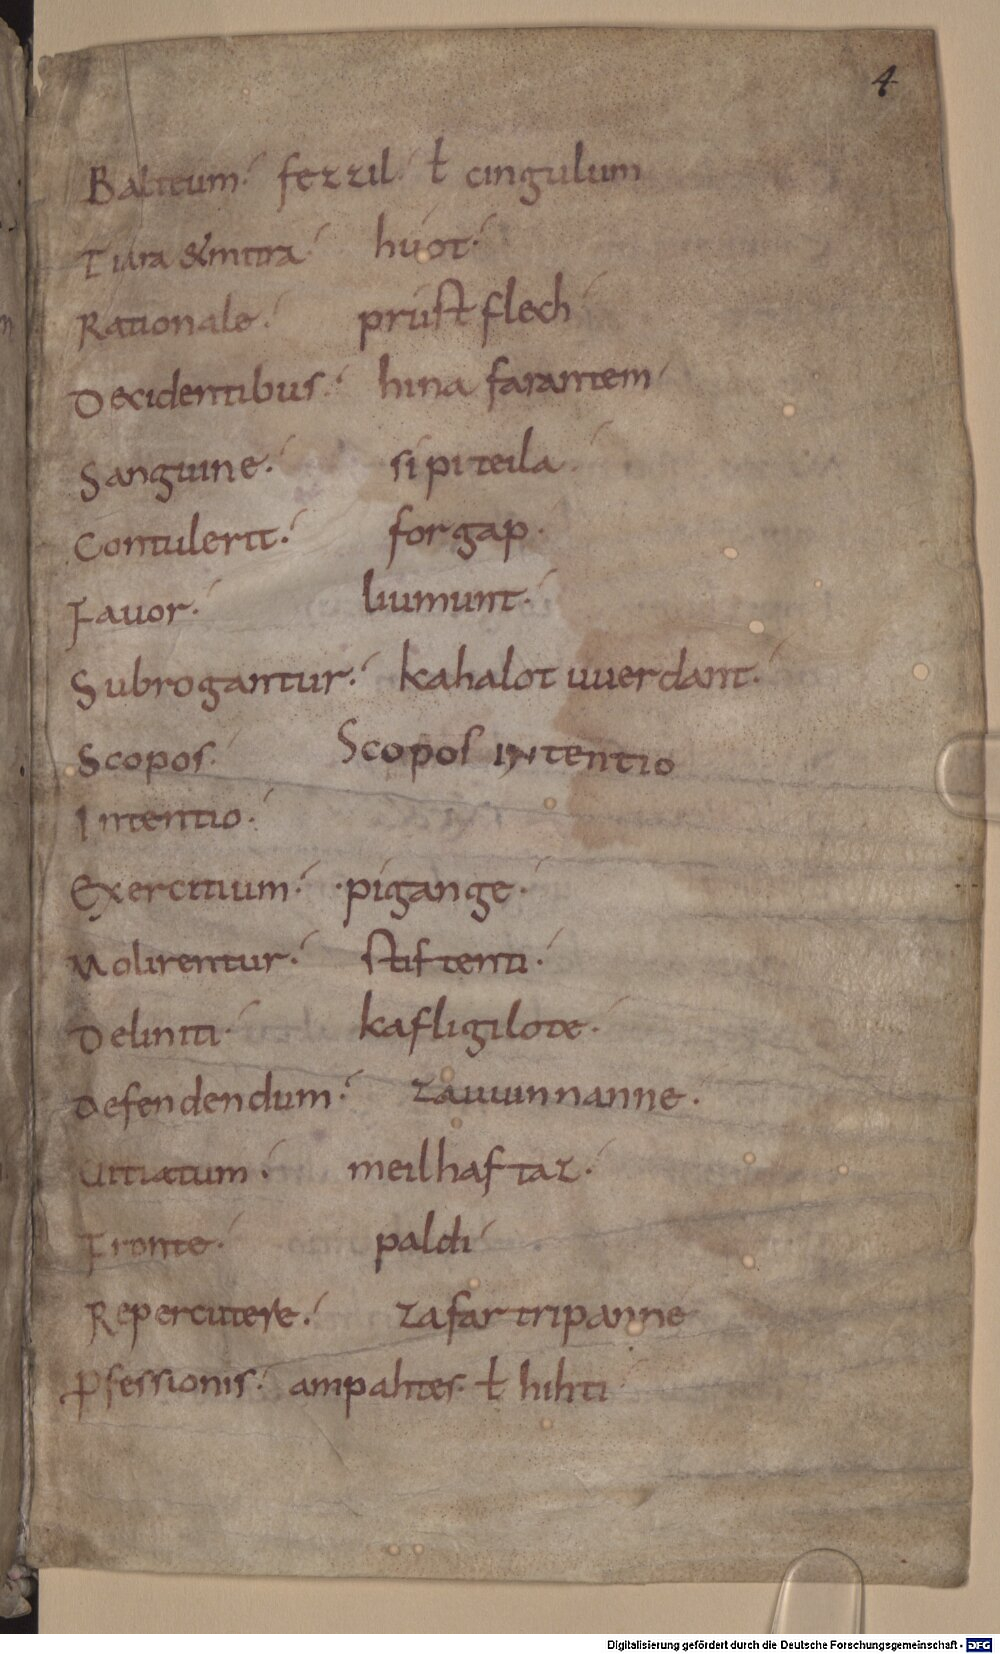 4
Balteum· fezzil· ł cingulum
Tiara & mitra· huot·
Rationale· prustflech
Decidentibus· hina farantem
Sanguine· sipiteila
Contulerit· forgap·
Favor· liumunt·
Subrogantur· kahalot uuerdant·
Scopos· Scopos intentio
Intentio·
Exercitium· ·pigange·
Molirentur· stiftenti·
Deliniti· kafligilote·
Defendendum· zauuinnanne·
Uitiatum· meilhaftaz·
Fronte· paldi
Repercutere· zafartripanne
Pfessionis· ampahtes· ł hihti
Digitalisierung gefördert durch die Deutsche Forschungsgemeinschaft - DFG